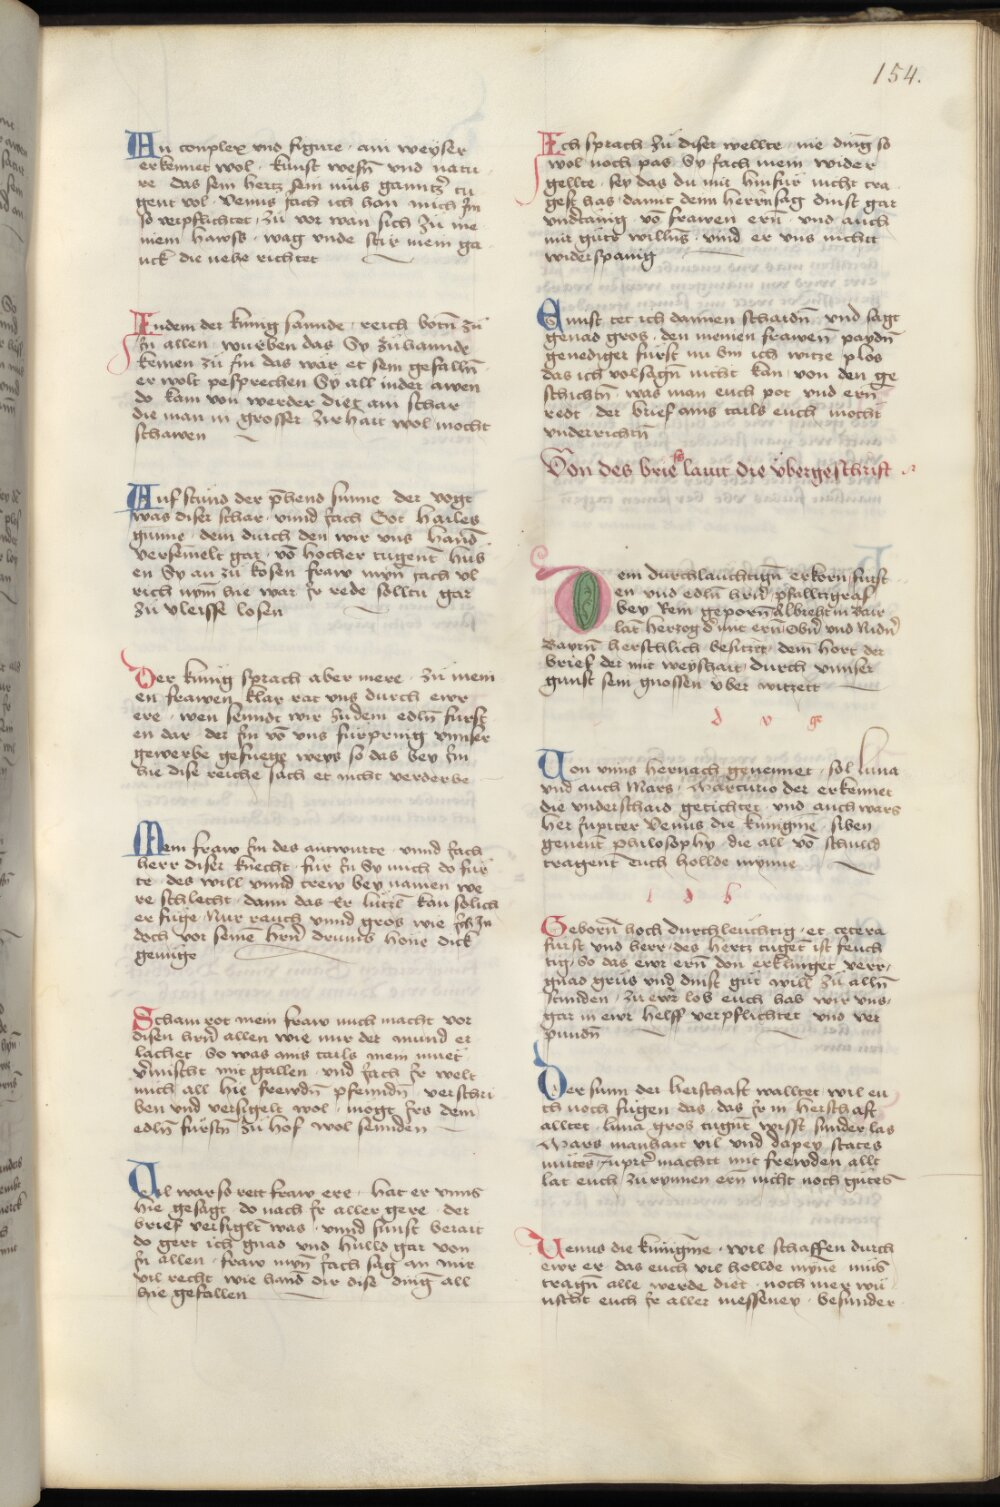 154.
An conplex vnd figure · ain weyser
erkennet wol · kunst wesn̄ vnd natu
re das sein hertz sein mus gantz tu
gent vol · Venus sach ich hon mich Im
so verpflichtet · zu vor wan sich zu me
niem hawss · wag vnde stir mein ga
uck die nehe richtet
Indem der kunig sannde · reich botn̄ zu
In allen · wurben das Sy zuhannde
kemen zu Im das wär et sein gefalln̄
er wolt pesprechen Sy all inder awen
do kam von werder diet ain schar
die man in grosser zirhait wol mocht
schawen
Auf stund der prehend sunne der vogt
was diser schar · vnnd sach Got hailes
gunne · dem durch den wir vns hand
versemelt gar · vō hocher tugent hus
en Sy an zu kosen fraw myn̄ sach vl
rich nym̄ hie war Ir rede solltu gar
zu vleisse losen
Der kunig sprach aber mere · zu mein
en frawen klar rat vns durch ewr
ere · wen senndt wir zu dem edln̄ furst
en dar · der Im vō vns furpring vnnser
gewerbe gefuege weys so das bey Im
hie dise reiche sach et nicht verderbe
Mein fraw Im des antwurte · vnnd sach
herr diser knecht · fur In Sy mich do fur
te · des will vnnd trew bey namen we
re schlecht · dann das Er lutzl kan solich
er fuge · Nur rauch vnnd gros wie
doch vor seinē hrn̄ drums hone dick
genuge
Scham rot mein fraw mich macht vor
disen hrn̄ allen wie mir det amund er
lachet · So was ains tails mein muet
vermischt mit gallen · vnd sach Ir welt
mich all hie frewdn̄ pfenndn̄ verschri
ben vnd versigelt wol · mogt Irs dem
edln̄ fürstn̄ zu hof wol sennden
Al war so rett fraw ere · hat er vnns
hie gesagt · do nach Ir aller gere · der
brief versiglt was · vnnd sunst berait
do gert ich gnad vnd hulld gar von
In allen · fraw myn̄ sach sag an mir
vil recht wie hand dir dise ding all
hie gefallen
Ich sprach zu diser wellte · nie ding so
wol noch pas Sy sach mein wider
gellte · sey das du mit hinfür nicht tra
gest has · damit denn herrn̄ sag dinst gar
vndtanig · vō frawen ern̄ · vnd auch
mit guter willns̄ · vnnd er vns nichtt
widerspanig
Sunst tet ich dannen schaidn̄ · vnd sagt
genad gros · den meinen frawen paydn̄
genediger furst nu bin ich witze plos
das ich volsagn̄ nicht kan · von den ge
schichtn̄ · was man euch pot vnd ern̄
redt · der brief ains tails euch mocht
vnderrichtn̄
Von des briefs laut die übergeschrift
Dem durchlauchtign̄ erkorn fürst
en vnd edln̄ hrn̄ pfalltzgraf
bey Rein geporn̄ Albreht in Bair
lat̄ herzog d' mit ern̄ Obn̄ vnd Nidn̄
Bayrn̄ herschlich besitzet · dem hort der
brief der mit weyshait durch vnnser
gunst sein gnossen über witzett
d v ge
Von vnns hernach genennet · sol luna
vnd auch Mars · Marcurio der erkennet
die vnderschaid getichtet · vnd auch wars
her Jupiter Venus die künigine · siben
genent philosophy · die all vō schuld
tragent euch hollde mynne
1 d b
Geborn̄ hoch durchleuchtig · et cetera
furst vnd herr · des hertz tuget ist feuch
tig · So das ewr ern̄ don erklinget verr ·
gnad grüs vnd dinst gut will zu alln̄
stunden · zu ewr lob euch hab wir vns
gar in ewr helff verpflichtet vnd ver
pundn̄
Der sunn der herschaft walltet wil eu
ch noch fügen das · das Ir in herschaft
alltet · luna gros tugnt wisst sunder las
Mars manhait vil vnd dapey states
mutes · Jupiter machtt mit frewden allt
lat euch zurynnen ern̄ nicht noch gütes
Venus die künigine · wil schaffen durch
ewr er · das euch vil hollde myne mus
tragn̄ alle werde diet · noch mer wü
nscht euch Ir aller messeney · besunder